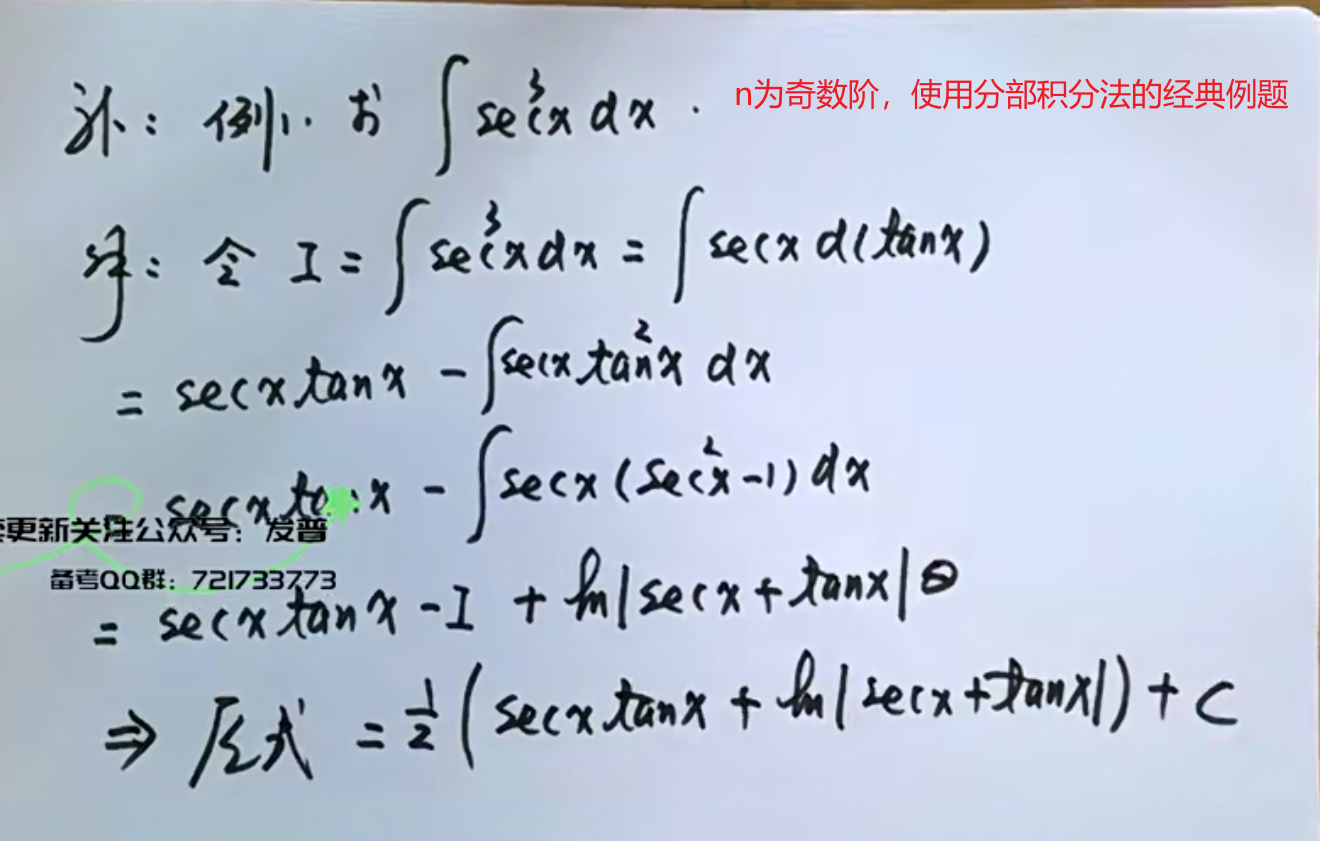 补：例1. 求 ∫sec³x dx .
n为奇数阶，使用分部积分法的经典例题
解：令 I = ∫sec³x dx = ∫secx d(tanx)
= secx tanx - ∫secx tan²x dx
= secx tanx - ∫secx (sec²x -1) dx
更新关注公众号：发普
备考QQ群：721733773
= secx tanx - I + ln|secx + tanx|
⇒ 原式 = 1/2 (secx tanx + ln|secx + tanx|) + C